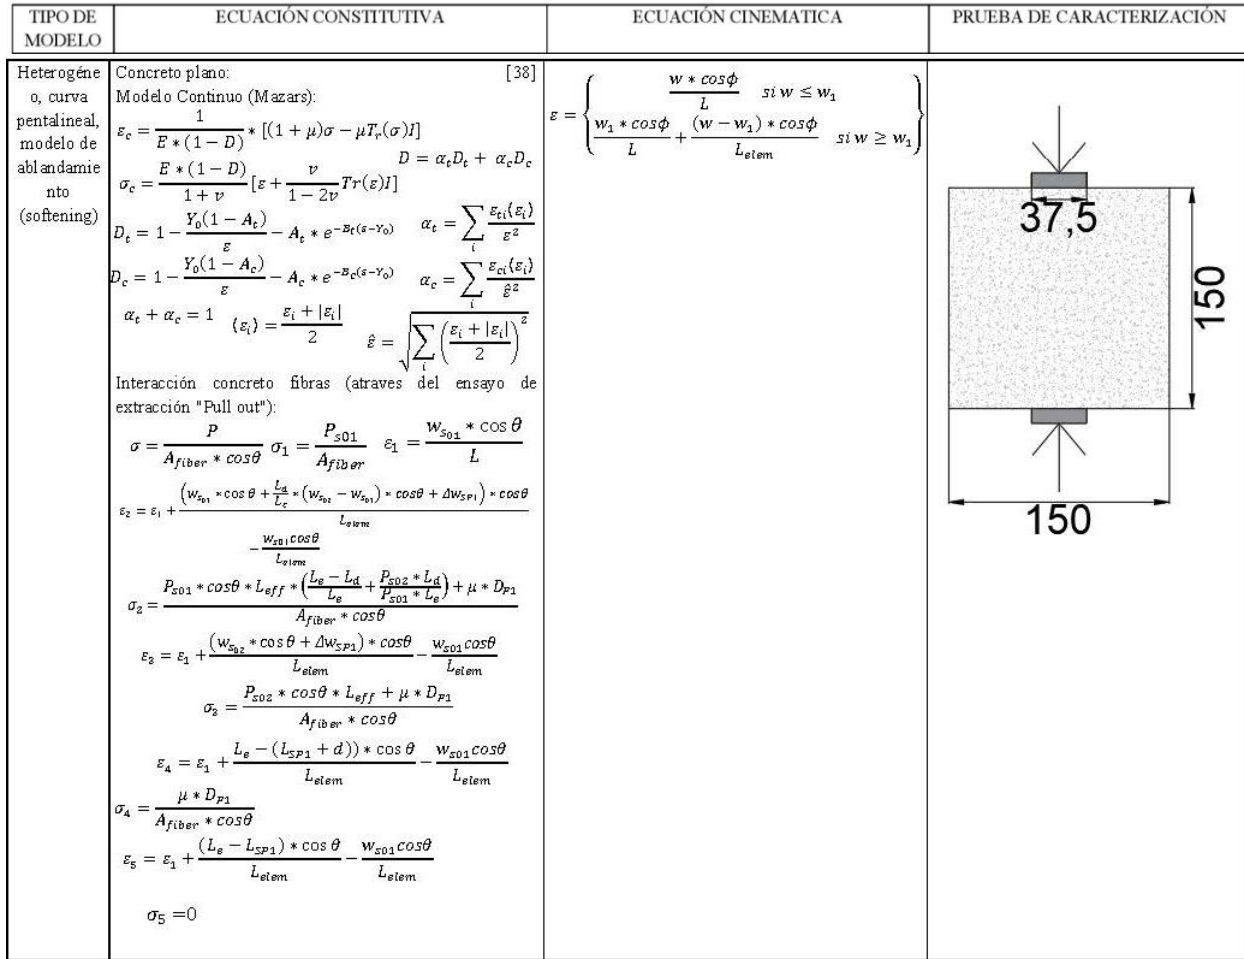 TIPO DE
MODELO
ECUACIÓN CONSTITUTIVA
ECUACIÓN CINEMATICA
PRUEBA DE CARACTERIZACIÓN
Heterogéne
o, curva
pentalineal,
modelo de
ablandamie
nto
(softening)
Concreto plano: [38]
Modelo Continuo (Mazars):
ε_c = 1 / (E * (1 − D)) * [(1 + μ)σ − μT_r(σ)I]
D = α_t D_t + α_c D_c
σ_c = (E * (1 − D)) / (1 + v) [ε + v / (1 − 2v) Tr(ε)I]
D_t = 1 − Y_0(1 − A_t) / ε − A_t * e^{−B_t(ε−Y_0)}   α_t = ∑_i ε_{ti}⟨ε_i⟩ / ε^2
D_c = 1 − Y_0(1 − A_c) / ε − A_c * e^{−B_c(ε−Y_0)}   α_c = ∑_i ε_{ci}⟨ε_i⟩ / ε̂^2
α_t + α_c = 1   ⟨ε_i⟩ = (ε_i + |ε_i|) / 2   ε̂ = √(∑_i ((ε_i + |ε_i|) / 2)^2)
Interacción concreto fibras (atraves del ensayo de
extracción "Pull out"):
σ = P / (A_{fiber} * cosθ)   σ_1 = P_{s01} / A_{fiber}   ε_1 = (w_{s01} * cos θ) / L
ε_2 = ε_1 + ((w_{s01} * cos θ + L_d / L_c * (w_{s02} − w_{s01}) * cosθ + Δw_{SP1}) * cosθ) / L_{elem}
− w_{s01}cosθ / L_{elem}
σ_2 = (P_{S01} * cosθ * L_{eff} * ((L_e − L_d) / L_e + (P_{S02} * L_d) / (P_{S01} * L_e)) + μ * D_{P1}) / (A_{fiber} * cosθ)
ε_3 = ε_1 + ((w_{s02} * cos θ + Δw_{SP1}) * cosθ) / L_{elem} − w_{s01}cosθ / L_{elem}
σ_3 = (P_{S02} * cosθ * L_{eff} + μ * D_{P1}) / (A_{fiber} * cosθ)
ε_4 = ε_1 + (L_e − (L_{SP1} + d)) * cos θ) / L_{elem} − w_{s01}cosθ / L_{elem}
σ_4 = (μ * D_{P1}) / (A_{fiber} * cosθ)
ε_5 = ε_1 + ((L_e − L_{SP1}) * cos θ) / L_{elem} − w_{s01}cosθ / L_{elem}
σ_5 =0
ε = { (w * cosϕ) / L   si w ≤ w_1
(w_1 * cosϕ) / L + ((w − w_1) * cosϕ) / L_{elem}   si w ≥ w_1 }
37,5
150
150